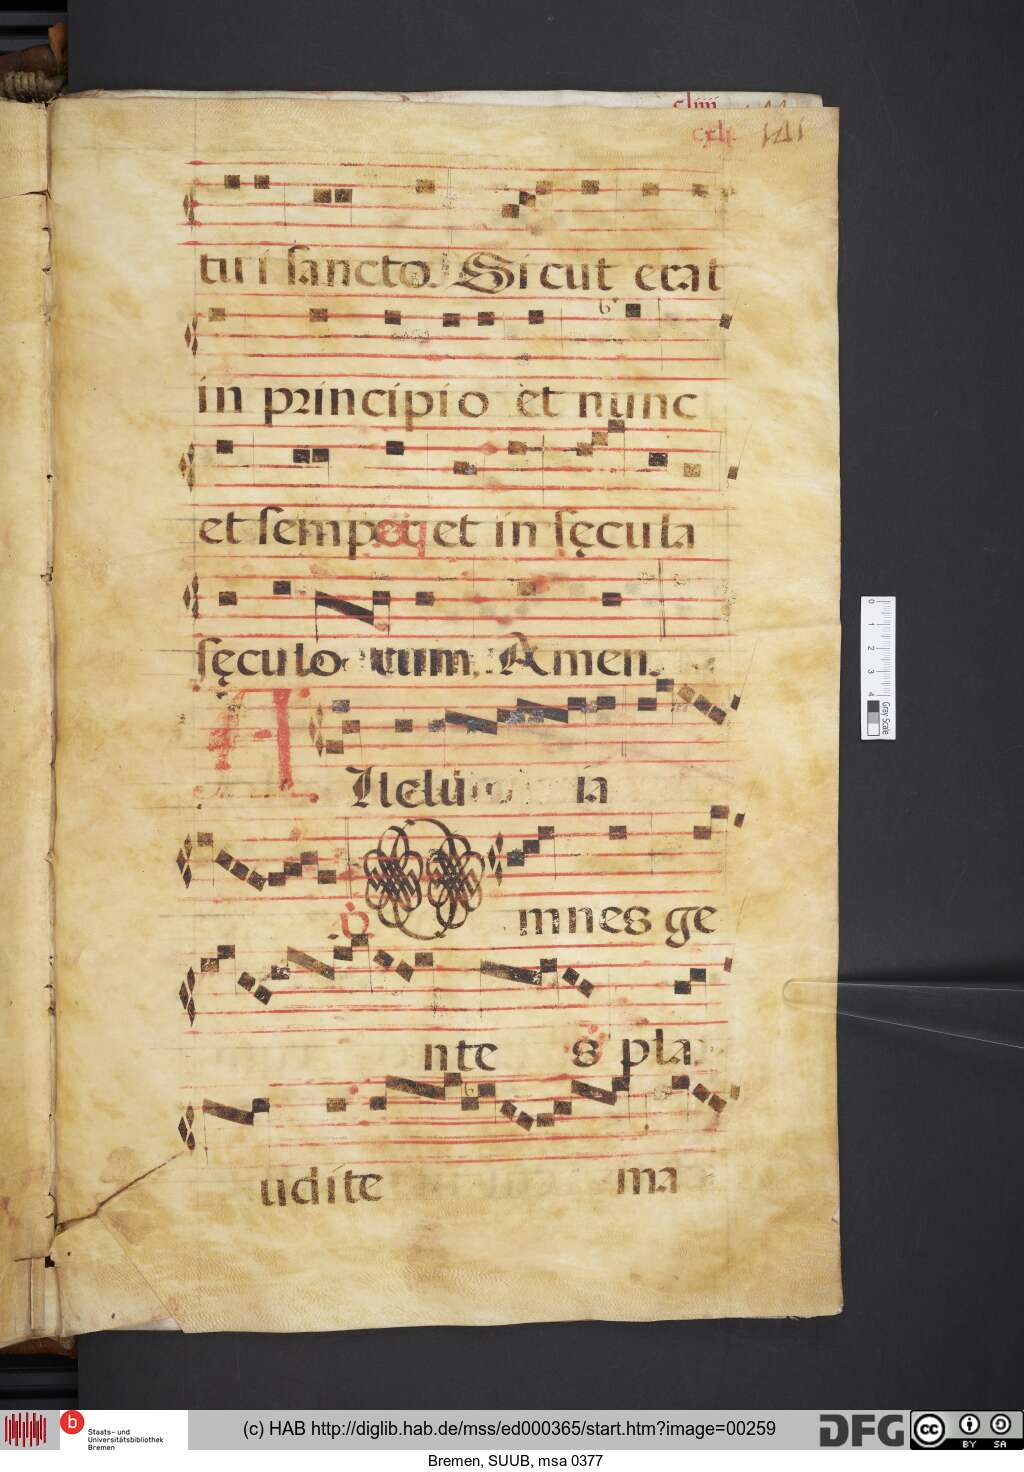 141
tui sancto. Sicut erat
in principio et nunc
et semper et in sęcula
sęculo rum, Amen.
A
lleluia
O
mnes ge
nte s pla
udite ma
0 1 2 3 4 Gray Scale
b Staats- und Universitätsbibliothek Bremen
(c) HAB http://diglib.hab.de/mss/ed000365/start.htm?image=00259
DFG
cc BY SA
Bremen, SUUB, msa 0377